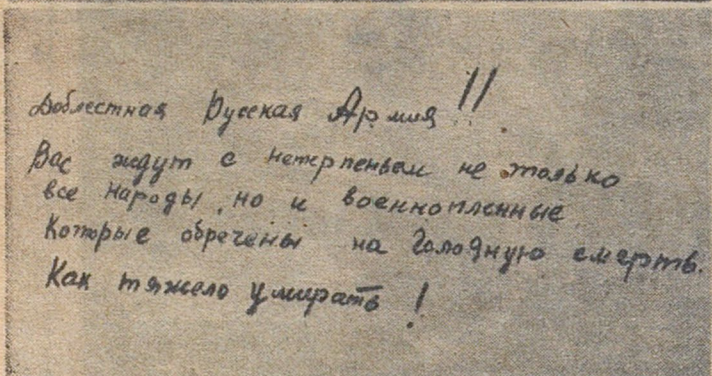 Доблестная Русская Армия!!
Вас ждут с нетерпеньем не только
все народы, но и военнопленные
Которые обречены на Голодную смерть.
Как тяжело умирать!